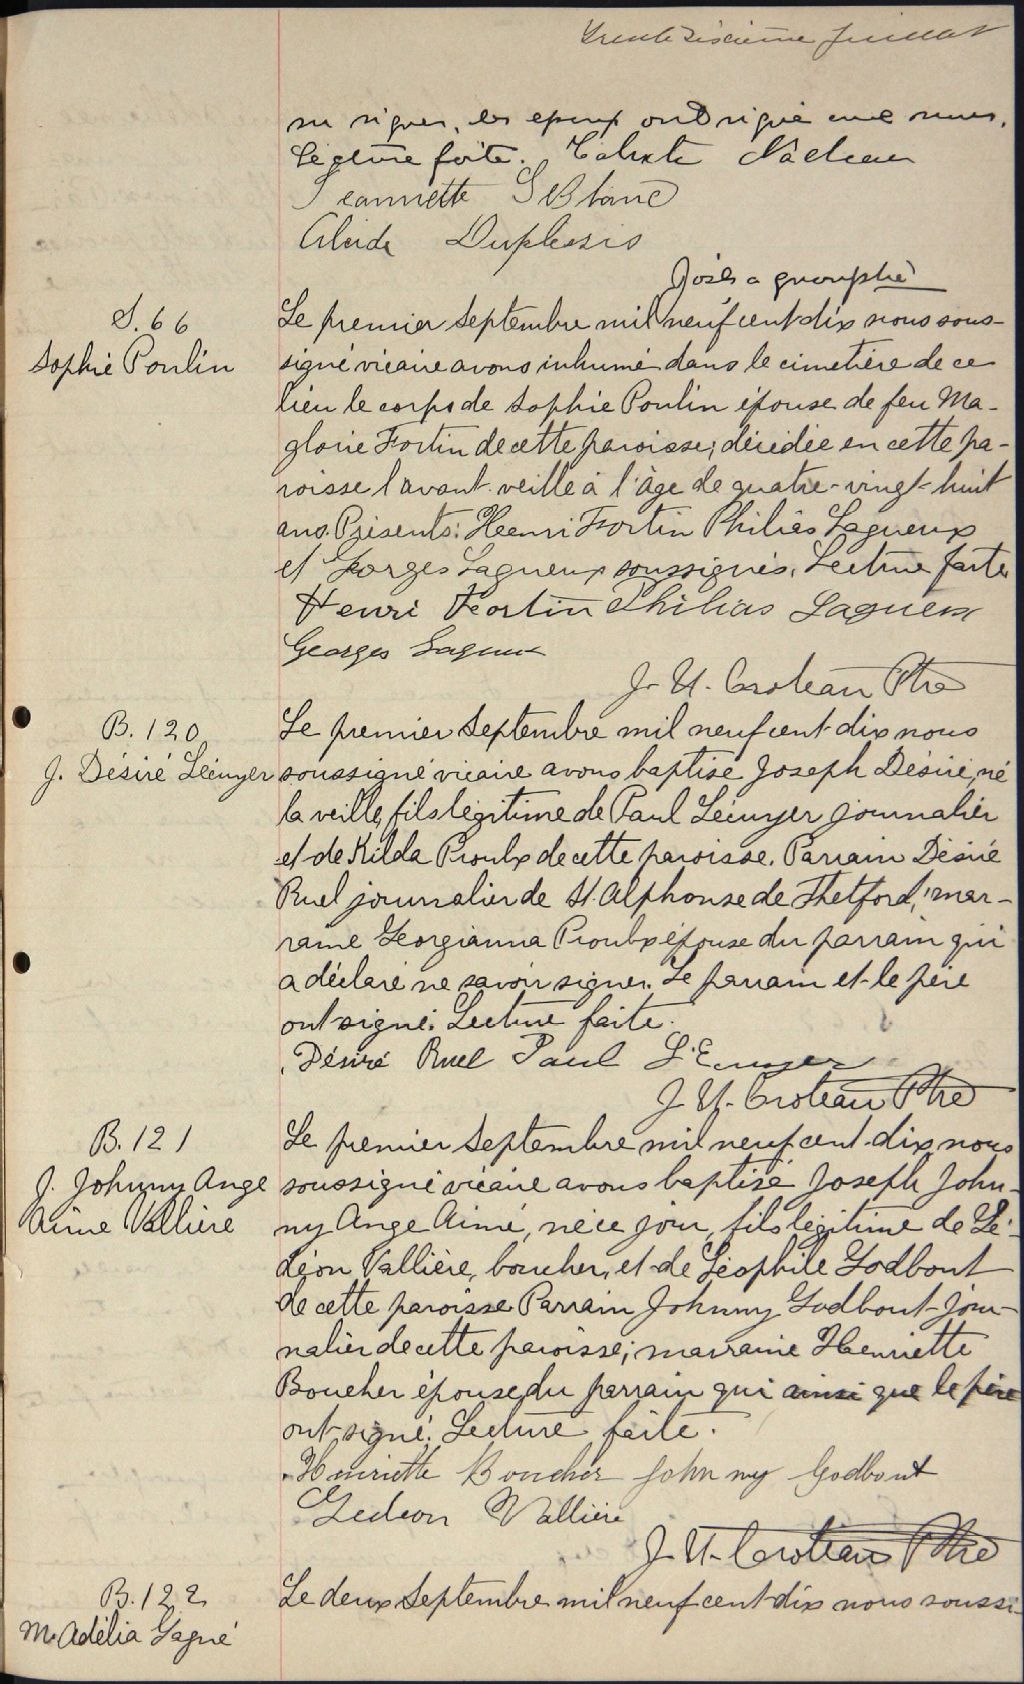 Trente sixième feuillet
su signer, les époux ont signé avec nous.
Lecture faite. Calixte Nadeau
Jeannette LeBlanc
Alcide Duplessis
S. 66
Sophie Poulin
Le premier Septembre mil neuf cent dix nous sous-
signé vicaire avons inhumé dans le cimetière de ce
lieu le corps de Sophie Poulin épouse de feu Ma-
gloire Fortin de cette paroisse, décédée en cette pa-
roisse l'avant-veille à l'âge de quatre-vingt-huit
ans. Présents: Henri Fortin Philias Lagueux
et Georges Lagueux soussignés. Lecture faite.
Henri Fortin Philias Lagueux
Georges Lagueux
J. U. Croteau Ptre
B. 120
J. Désiré Lécuyer
Le premier Septembre mil neuf cent dix nous
soussigné vicaire avons baptisé Joseph Désiré, né
la veille, fils légitime de Paul Lécuyer journalier
et de Kilda Proulx de cette paroisse. Parrain Désiré
Ruel journalier de St. Alphonse de Thetford, mar-
raine Georgianna Proulx épouse du parrain qui
a déclaré ne savoir signer. Le parrain et le père
ont signé. Lecture faite.
Désiré Ruel Paul L'Ecuyer
J. U. Croteau Ptre
B. 121
J. Johnny Ange
Aimé Vallière
Le premier Septembre mil neuf cent dix nous
soussigné vicaire avons baptisé Joseph John-
ny Ange Aimé, né ce jour, fils légitime de Gé-
déon Vallière, boucher, et de Léophile Godbout
de cette paroisse. Parrain Johnny Godbout jour-
nalier de cette paroisse; marraine Henriette
Boucher épouse du parrain qui ainsi que le père
ont signé. Lecture faite.
Henriette Boucher Johnny Godbout
Gedeon Vallière
J. U. Croteau Ptre
B. 122
M. Adélia Gagné
Le deux Septembre mil neuf cent dix nous soussi-